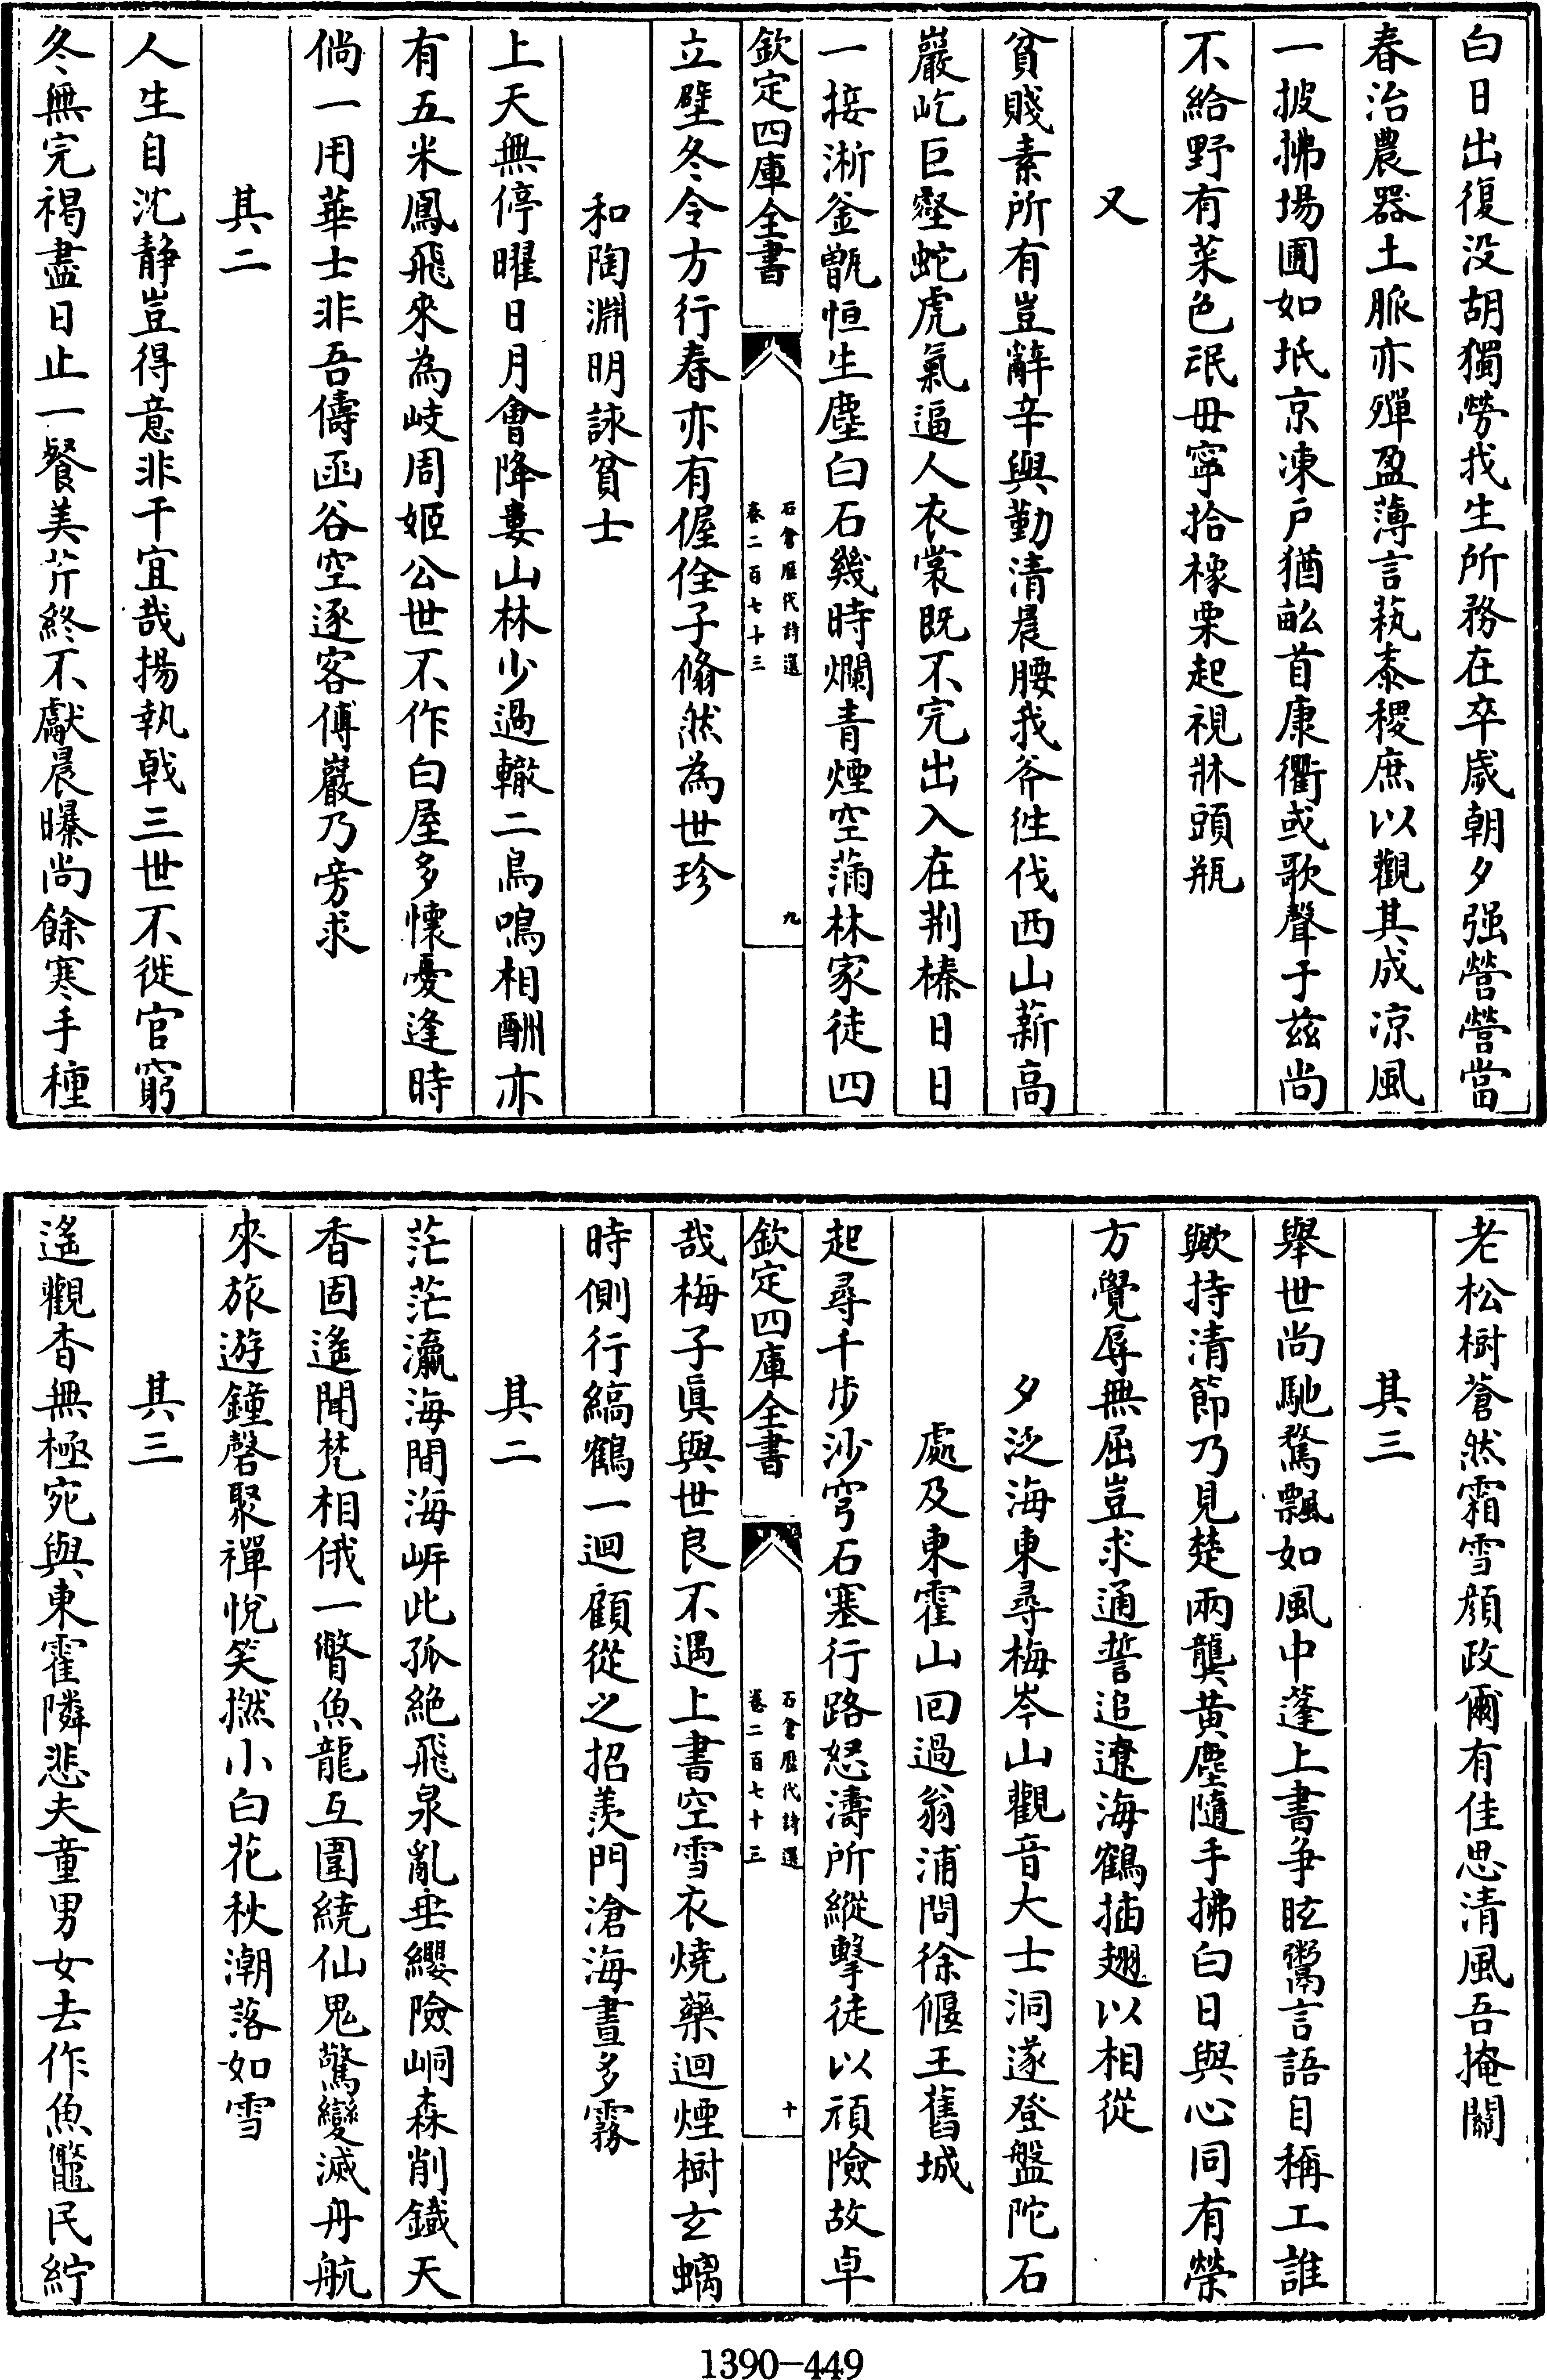 白日出復没胡獨勞我生所務在卒歲朝夕强營營當
春治農器土脈亦殫盈薄言蓺黍稷庶以觀其成凉風
一披拂場圃如坻京凍戸猶畝首康衢或歌聲于兹尚
不給野有菜色氓毋寧拾橡栗起視牀頭瓶
又
貧賤素所有豈辭辛與勤清晨腰我斧徃伐西山薪高
巖屹巨壑蛇虎氣逼人衣裳既不完出入在荆榛日日
一接淅釜甑恒生塵白石幾時爛青煙空滿林家徒四
欽定四庫全書
石倉歴代詩選
卷二百七十三
九
立壁冬令方行春亦有偓佺子翛然為世珍
和陶淵明詠貧士
上天無停曜日月會降婁山林少過轍二鳥鳴相酬亦
有五米鳳飛來為岐周姬公世不作白屋多懷憂逢時
倘一用華士非吾儔函谷空逐客傅巖乃旁求
其二
人生自沈静豈得意非干宜哉揚執戟三世不徙官窮
冬無完褐盡日止一餐美芹終不獻晨曝尚餘寒手種
老松樹蒼然霜雪顔政爾有佳思清風吾掩關
其三
舉世尚馳騖飄如風中蓬上書爭眩鬻言語自稱工誰
歟持清節乃見楚兩龔黄塵隨手拂白日與心同有榮
方覺辱無屈豈求通誓追遼海鶴插翅以相從
夕泛海東尋梅岑山觀音大士洞遂登盤陀石
處及東霍山回過翁浦問徐偃王舊城
起尋千步沙穹石塞行路怒濤所縱擊徒以頑險故卓
欽定四庫全書
石倉歴代詩選
卷二百七十三
十
哉梅子眞與世良不遇上書空雪衣燒藥迴煙樹玄螭
時側行縞鶴一迴顧從之招羨門滄海晝多霧
其二
茫茫瀛海間海岍此孤絶飛泉亂垂纓險峒森削鐵天
香固遙聞梵相俄一瞥魚龍互圍繞仙鬼驚變滅丹航
來旅遊鐘磬聚禪悅笑撚小白花秋潮落如雪
其三
遙觀杳無極宛與東霍隣悲夫童男女去作魚鼈民紵
1390-449